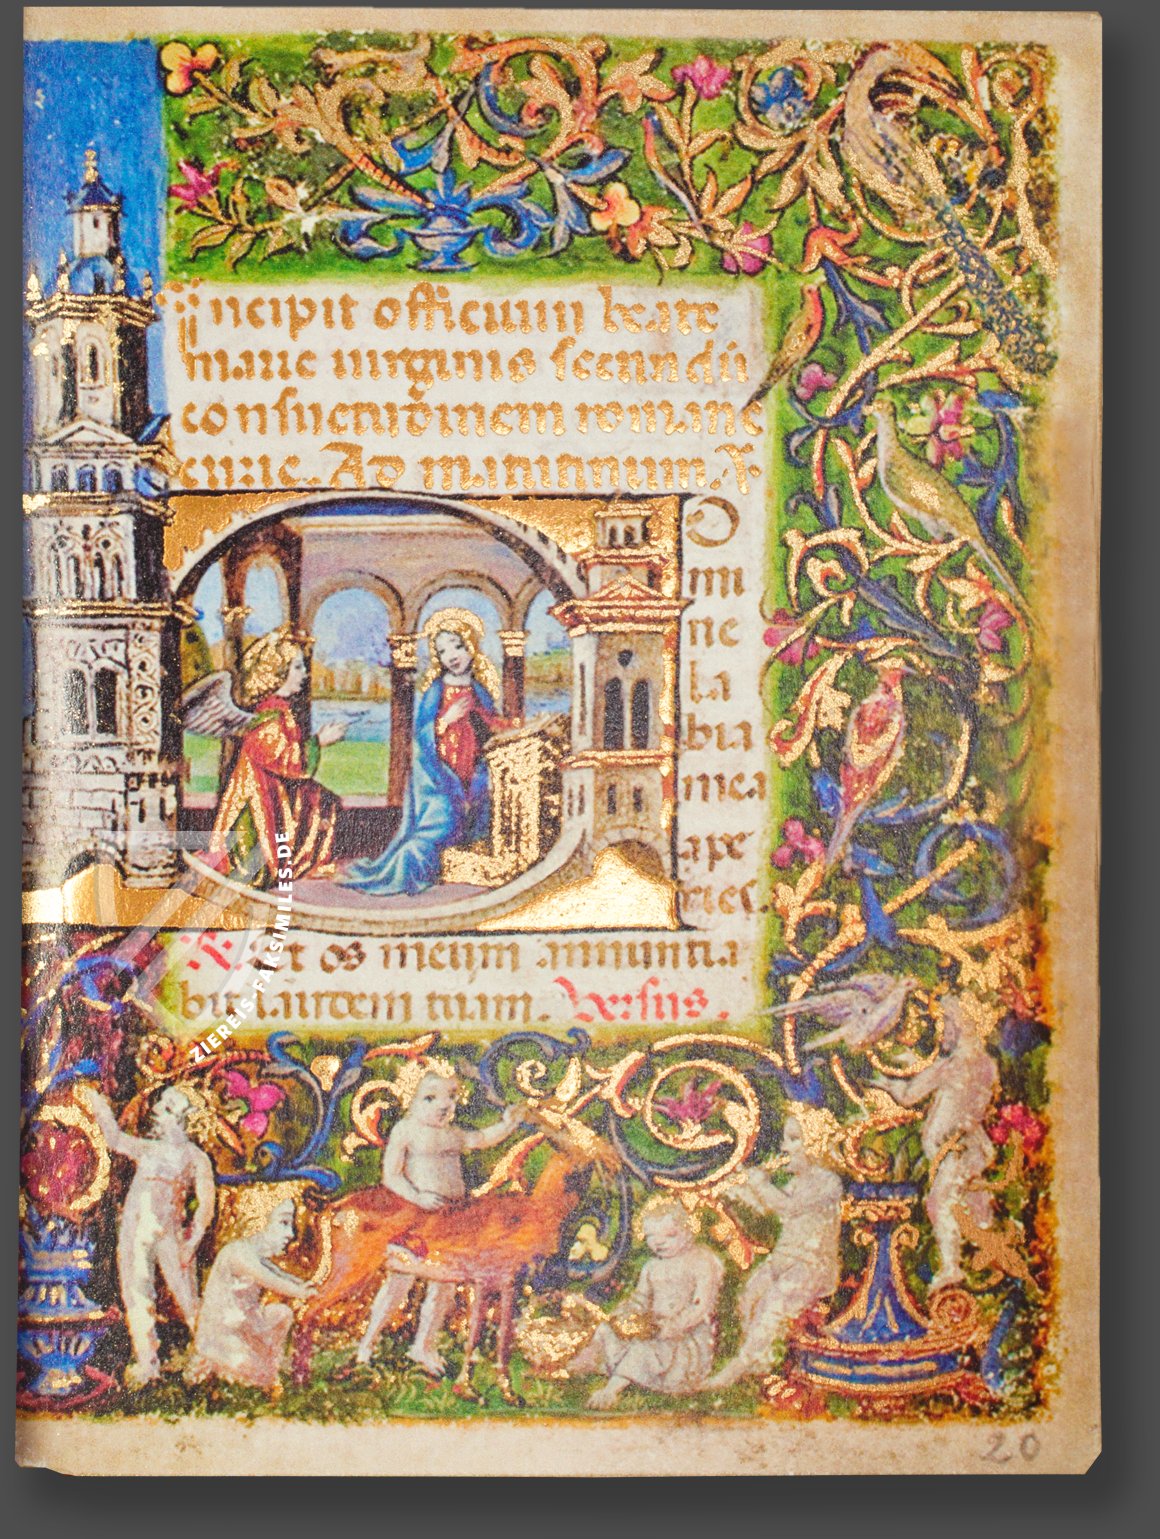 incipit officium beate
marie uirginis secundū
consuetudinem romane
curie. Ad matutinum. X
O
mi
ne
la
bia
mea
ape
ries.
R Et os meum annuntia
bit laudem tuam. Versus.
ZIEREIS FAKSIMILES.DE
20